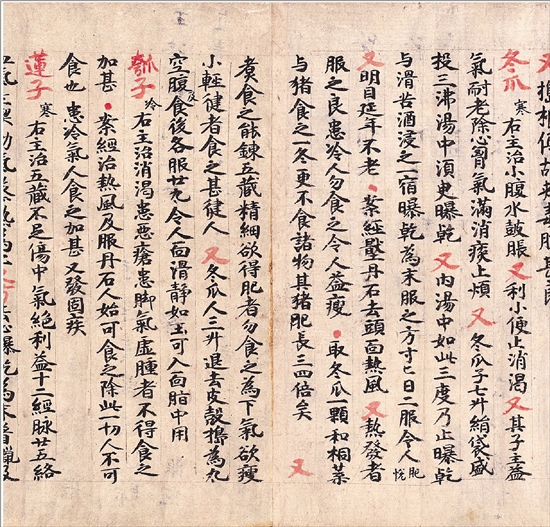 冬瓜寒 右主治小腹水皷脹 又利小便止消渴 又其子主益
氣耐老除心胷氣滿消痰止煩 又冬瓜子七升絹袋盛
投三沸湯中湏臾曝乾 又內湯中如此三度乃止曝乾
与清苦酒浸之一宿曝乾為末服之方寸匕日二服令人肥悅
又明目延年不老 案經壓丹石去頭面熱風 又熱發者
服之良患冷人勿食之令人益瘦 取冬瓜一顆和桐葉
与猪食之一冬更不食諸物其猪肥長三四倍矣 又
煮食之能鍊五藏精細欲得肥者勿食之為下氣欲瘦
小輕健者食之甚健人 又冬瓜人三升退去皮殼擣為丸
空腹及食後各服廿丸令人面滑静如玉可入面脂中用
瓠子冷 右主治消渴患惡瘡患脚氣虛腫者不得食之
加甚 案經治熱風及服丹石人始可食之除此一切人不可
食也 患冷氣人食之加甚又發固疾
蓮子寒 右主治五藏不足傷中氣絕利益十二經脉廿五絡